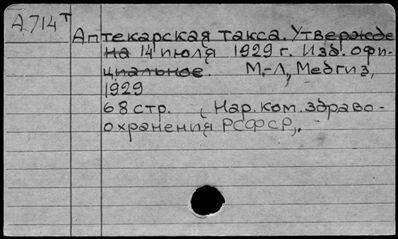 А714т
Аптекарская такса. Утвержде
на 14 июля 1929 г. Изд. офи-
циальное. М.-Л, Медгиз,
1929
68 стр. (Нар. ком. здраво-
охранения РСФСР),.